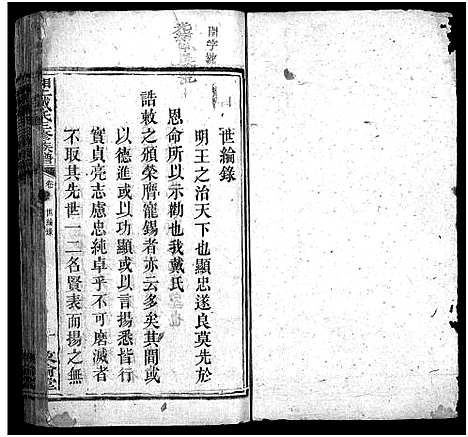 世綸錄
明王之治天下也顯忠遂良莫先於
恩命所以示勸也我戴氏
誥敕之頒榮膺寵錫者亦云多矣其間或
以德進或以功顯或以言揚悉皆行
實貞亮志慮忠純卓乎不可磨滅者
不取其先世一二名賢表而揚之無
戴氏三修族譜
卷
世綸錄
一